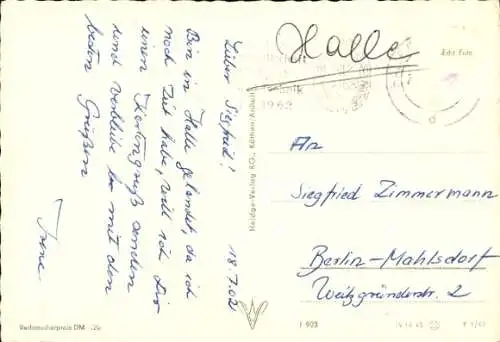 Halle
Echt Foto
1963
d
18.7.02
Lieber Siegfried!
Bin in Halle gelandet, da ich
noch Zeit habe, will ich Dir
einen Kartengruß senden
und verbleibe so mit den
besten Grüßen
Irene.
An
Siegfried Zimmermann
Berlin-Mahlsdorf
Weitzgründerstr. 2
Verbraucherpreis DM -,20
I 903
IV 14 45